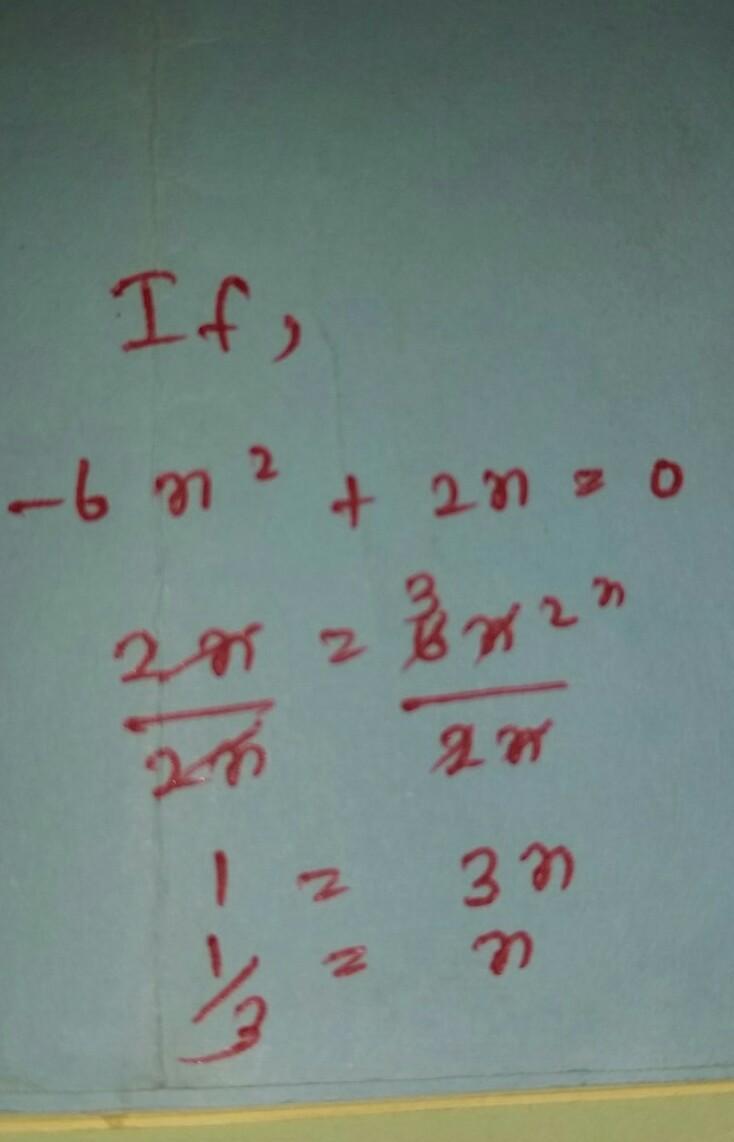 If,
-6x² + 2x = 0
2x/2x = 6x²/2x 3 x
1 = 3x
1/3 = x